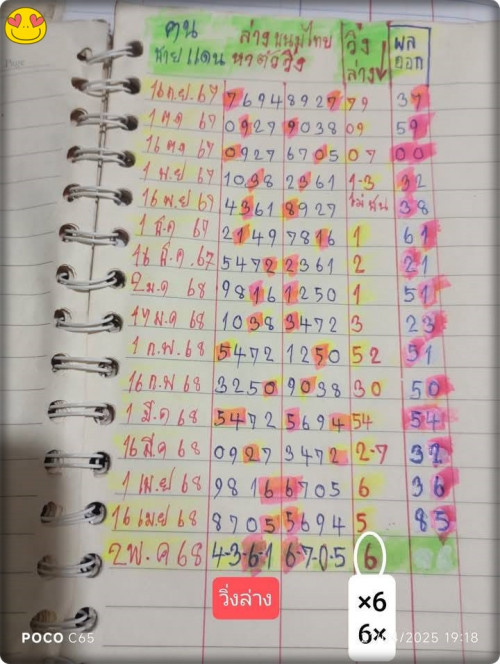 คน ล่างหนุ่มไทย วิ่ง ผล
ชายแดน หาตัววิ่ง ล่าง ออก
16 ก.ย. 67 7694 8927 79 37
1 ตค 67 0927 9038 09 59
16 ตค 67 0927 6705 07 00
1 พ.ย 67 1038 2361 1-3 32
16 พ.ย 68 4361 8927 ไม่ชน 38
1 ธ.ค 67 2149 7816 1 61
16 ธ.ค. 67 5472 2361 2 21
2 ม.ค 68 9816 1250 1 51
17 ม.ค 68 1038 3472 3 23
1 ก.พ. 68 5472 1250 52 51
16 ก.พ 68 3250 9038 30 50
1 มี.ค 68 5472 5694 54 54
16 มีค 68 0927 3472 2-7 32
1 เม.ย 68 9816 6705 6 36
16 เมย 68 8705 5694 5 85
2 พ.ค 68 4-3-6-1 6-7-0-5 6
วิ่งล่าง ×6
6×
POCO C65 /2025 19:18